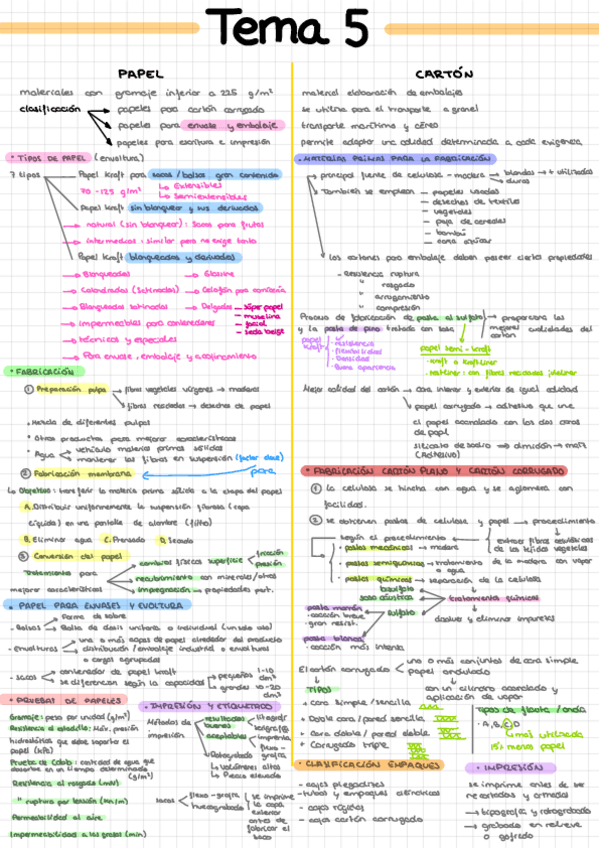 Tema 5
PAPEL
materiales con gramaje inferior a 225 g/m²
clasificación
papeles para cartón corrugado
papeles para envase y embalaje
papeles para escritura e impresión
• TIPOS DE PAPEL (envoltura)
7 tipos
Papel Kraft para sacos/bolsas gran contenido
70-125 g/m²
Extensibles
Semiextensibles
Papel Kraft sin blanquear y sus derivados
natural (sin blanquear): Sacos para frutas
intermedios: similar pero no exige tanto
Papel Kraft blanqueados y derivados
Blanqueados
Glassine
Calandrados (satinados)
Celofán para
Blanqueados satinados
Delgados
súper papel
muselina
facial
seda beige
impermeables para contenedores
técnicos y especiales
Para envase, embalaje y acojinamiento
• FABRICACIÓN
① Preparación pulpa
fibras vegetales vírgenes → maderas
fibras recicladas → desechos de papel
• Mezcla de diferentes pulpas
• Otros productos para mejorar características
• Agua
vehículo materia primas sólidas
mantener las fibras en suspensión (factor clave)
② Fabricación membrana
para
Objetivo: transferir la materia prima sólida a la etapa del papel
A. Distribuir uniformemente la suspensión fibrosa (capa
líquida) en una pantalla de alambre (filtro)
B. Eliminar agua C. Prensado D. Secado
③ Conversión del papel
Tratamientos para
mejorar características
cambios físicos superficie
fricción
presión
recubrimiento con minerales/otros
impregnación → propiedades part.
• PAPEL PARA ENVASES Y EVOLTURA
- Bolsas
forma de sobre
Bolsa de dosis unitaria o individual (un solo uso)
- Envolturas
una o más capas de papel alrededor del producto
distribución/embalaje industrial o envoltura
o cargas agrupadas
- sacos
contenedor de papel kraft
se diferencian según la capacidad
pequeños 1-10 dm³
grandes 10-20 dm³
• PRUEBAS DE PAPELES
Gramaje: peso por unidad (g/m²)
Resistencia al estallido: Máx. presión
hidrostática que debe soportar el
papel (kPa)
Prueba de Cobb: cantidad de agua que
absorbe en un tiempo determinado
(g/m²)
Resistencia al rasgado (mN)
" ruptura por tensión (kN/m)
Permeabilidad al aire
Impermeabilidad a las grasas (min)
• IMPRESIÓN Y ETIQUETADO
Métodos de
impresión
resultados buenos
aceptables
flexo-
grafía
Rotograbado
Volúmenes altos
Precio elevado
sacos
flexo-grafía
huecograbado
se imprime
la capa
exterior
antes de
fabricar el
saco
CARTÓN
material elaboración de embalajes
se utiliza para el transporte a granel
transporte marítimo y aéreo
permite adaptar una calidad determinada a cada exigencia
• MATERIAS PRIMAS PARA LA FABRICACIÓN
principal fuente de celulosa - madera
blandas → + utilizadas
duras
También se emplean
- papeles usados
- desechos de textiles
- vegetales
- paja de cereales
- bambú
- caña azúcar
los cartones para embalaje deben poseer ciertas propiedades
- Resistencia ruptura
" rasgado
" arrugamiento
" compresión
Proceso de fabricación de pasta al sulfato
y la pasta de pino tratada con sosa
proporciona las
mejores cualidades del
cartón
papel Kraft
- resistencia
- flexibilidad
- Densidad
- Buena apariencia
papel semi-kraft
- kraft o kraftliner
- Testliner: con fibras recicladas
Mejor calidad del cartón → Cara interior y exterior de igual calidad
papel corrugado → adhesivo que une
el papel acanalado con las dos caras
de papel
silicato de sodio → almidón → maíz
(Adhesivo)
• FABRICACIÓN CARTÓN PLANO Y CARTÓN CORRUGADO
① La celulosa se hincha con agua y se aglomera con
facilidad.
② se obtienen pastas de celulosa y papel → procedimiento
según el procedimiento
extraer fibras
de los tejidos vegetales
• pastas mecánicas → madera
• pastas semiquímicas → tratamiento de la madera con vapor
o agua
• pastas químicas → separación de la celulosa
bisulfito
sosa cáustica
sulfato
tratamientos químicos
disolver y eliminar impurezas
pasta marrón
• cocción breve
• gran resist.
pasta blanca
• cocción más intensa
El cartón corrugado
uno o más conjuntos de cara simple
papel ondulado
con un cilindro acanalado y
aplicación de vapor
TIPOS
+ cara simple/sencilla
+ Doble cara/pared sencilla
+ cara doble/pared doble
+ Corrugado triple
Tipos de flauta/onda
• A, B, C, D
más utilizada
15% menos papel
• CLASIFICACIÓN EMPAQUES
- cajas plegadizas
- tubos y empaques cilíndricos
- cajas rígidas
- cajas cartón corrugado
• IMPRESIÓN
se imprime antes de ser
recortadas y armadas
→ tipografía y rotograbado
→ grabado en relieve
o gofrado